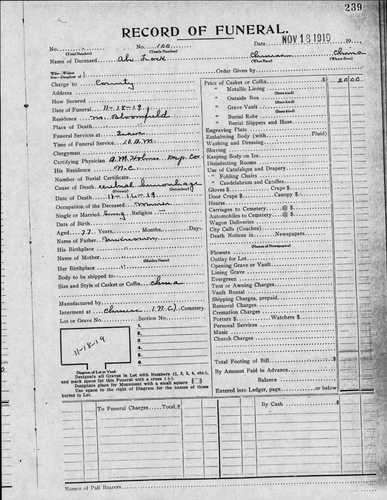 239
RECORD OF FUNERAL.
No. (Total Number) No. 100 (Yearly Number) Date NOV 18 1919 19
Name of Deceased Ah (What Race) China (Where Born)
Charge to County Order Given by
Address Price of Casket or Coffin $ 20 00
How Secured " Metallic Lining
Date of Funeral 11-18-19 " Outside Box
Residence No. Bloomfield " Grave Vault
Place of Death " Burial Robe
Funeral Services at Grave " Burial Slippers and Hose
Time of Funeral Service 10 A.M. Engraving Plate
Clergyman Embalming Body (with Fluid)
Certifying Physician Washing and Dressing
His Residence N.C. Shaving
Number of Burial Certificate Keeping Body on Ice
Cause of Death Cerebral Hemorrhage Disinfecting Rooms
Date of Death 11-16-19 Use of Catafalque and Drapery
Occupation of the Deceased Miner " Folding Chairs
Single or Married Sing Religion " Candelabrum and Candles
Date of Birth Gloves $ Crape $
Aged 77 Years, Months, Days. Door Crape $ Canopy $
Name of Father Unknown Hearse
His Birthplace Carriages to Cemetery @ $
Name of Mother (Maiden Name) Automobiles to Cemetery @ $
Her Birthplace " Wagon Deliveries
Body to be shipped to City Calls (Coaches)
Size and Style of Casket or Coffin China Death Notices in Newspapers.
(Names of Newspapers)
Flowers
Outlay for Lot
Opening Grave or Vault
Lining Grave
Evergreen
Tent or Awning Charges
Vault Rental
Manufactured by Shipping Charges, prepaid
Interment at Chinese (N.C.) Cemetery. Removal Charges
Lot or Grave No. Section No. Cremation Charges
1 Porters $ Watchers $
2 Personal Services
11-18-19 3 Music
4 Church Charges
5
6
Diagram of Lot or Vault
Designate all Graves in Lot with Numbers (1, 2, 3, 4, etc.), Total Footing of Bill
and mark space for this Funeral with a cross (+). By Amount Paid in Advance
Designate place for Monument with a small square [ ] Balance
Use the space to the right of Diagram for the names of those
buried in Lot. Entered into Ledger, page or below
To Funeral Charges Total, $ By Cash $
Names of Pall Bearers